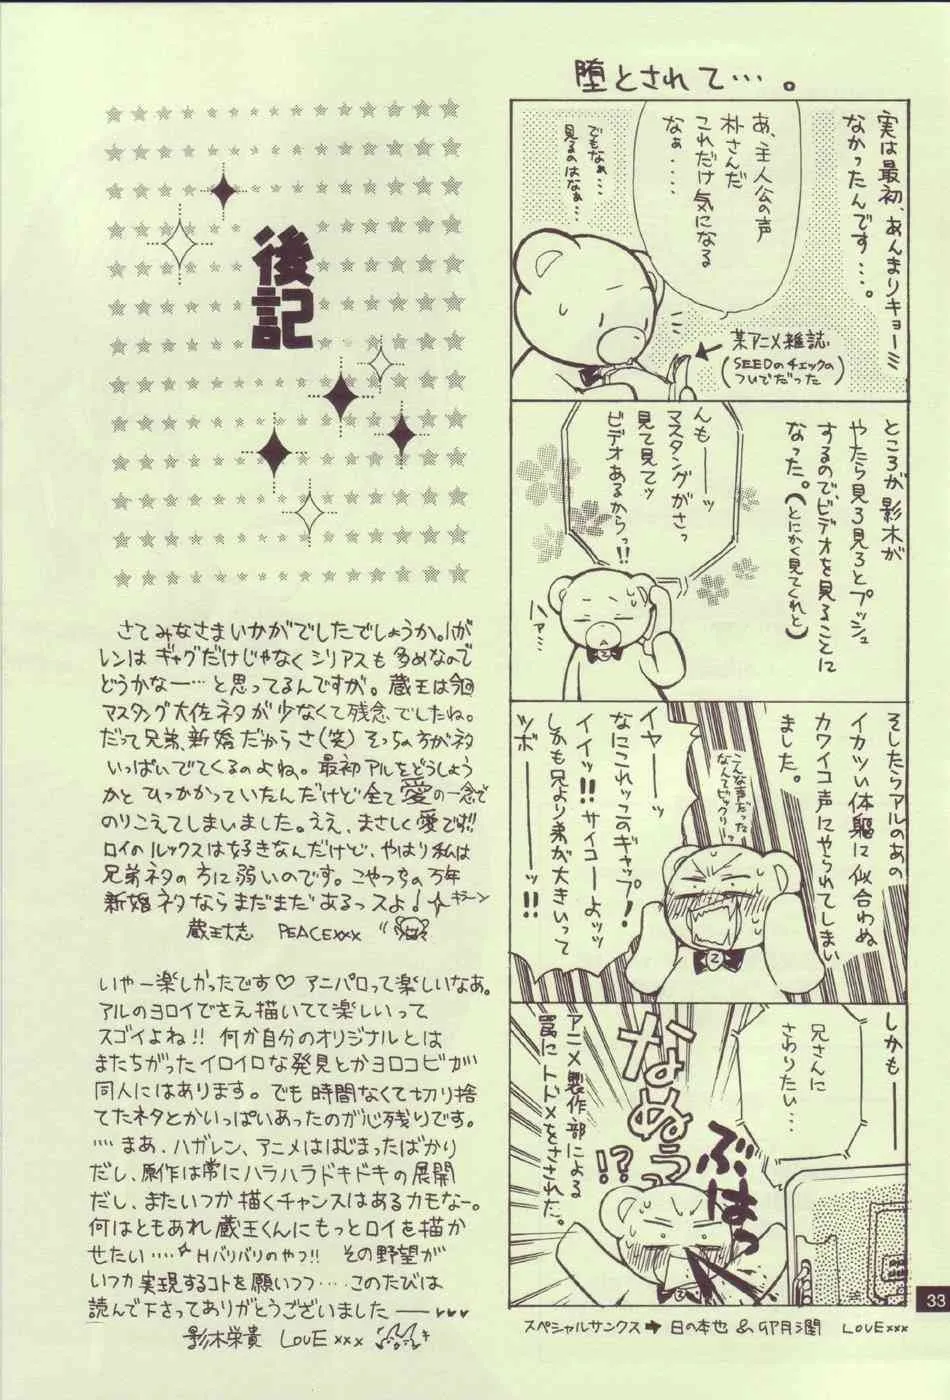 堕とされて…。
実は最初、あんまりキョーミ
なかったんです…。
あ、主人公の声
朴さんだ
これだけ気になる
なぁ‥‥
でもなぁ…
見るのはなぁ…
某アニメ雑誌
(SEEDのチェックの
ついでだった)
ところが影木が
やたら見ろ見ろとプッシュ
するので、ビデオを見ることに
なった。(とにかく見てくれと)
んも──ッ
マスタングがさっ
見て見てッ
ビデオあるからっ!!
ハァ…
そしたらアルのあの
イカツい体躯に似合わぬ
カワイコ声にやられてしまい
ました。
こんな声だった
なんてビックリーっ
イヤ──ッ
なにこれッこのギャップ!
イイッ!!サイコーよッッ
しかも兄より弟が大きいって
ツボ──ッ!!
──しかも──
兄さんに
さわりたい…
なぬぅ!?
ぶはっ
アニメ製作部による
罠にトドメをさされた。
スペシャルサンクス➡日の本也&卯月潤 LOVExxx
後記
さてみなさまいかがでしたでしょうか。ハガ
レンはギャグだけじゃなくシリアスも多めなので
どうかなー…と思ってるんですが。蔵王は今回
マスタング大佐ネタが少なくて残念でしたね。
だって兄弟、新婚だからさ(笑)そっちの方がネタ
いっぱいでてくるのよね。最初アルをどうしよう
かとひっかかっていたんだけど全て愛の一念で
のりこえてしまいました。ええ、まさしく愛です!!
ロイのルックスは好きなんだけど、やはり私は
兄弟ネタの方に弱いのです。こやつらの万年
新婚ネタならまだまだあるっスよ! キラーン
蔵王大志 PEACExxx
いやー楽しかったです♡アニパロって楽しいなあ。
アルのヨロイでさえ描いてて楽しいって
スゴイよね!!何か自分のオリジナルとは
またちがったイロイロな発見とかヨロコビが
同人にはあります。でも時間なくて切り捨
てたネタとかいっぱいあったのが心残りです。
‥‥まあ、ハガレン、アニメははじまったばかり
だし、原作は常にハラハラドキドキの展開
だし、またいつか描くチャンスはあるカモなー。
何はともあれ蔵王くんにもっとロイを描か
せたい‥‥☆Hバリバリのやつ!! その野望が
いつか実現するコトを願いつつ‥‥このたびは
読んで下さってありがとうございました──♥♥♥
影木栄貴 LOVExxx
33